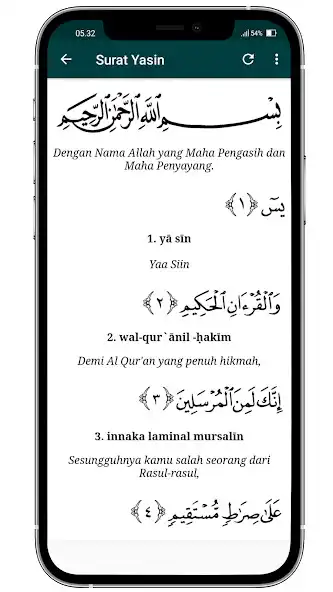 05.32
54%
Surat Yasin
بِسْمِ اللَّهِ الرَّحْمَٰنِ الرَّحِيمِ
Dengan Nama Allah yang Maha Pengasih dan
Maha Penyayang.
يسٓ ﴿١﴾
1. yā sīn
Yaa Siin
وَالْقُرْءَانِ الْحَكِيمِ ﴿٢﴾
2. wal-qur`ānil -ḥakīm
Demi Al Qur'an yang penuh hikmah,
إِنَّكَ لَمِنَ الْمُرْسَلِينَ ﴿٣﴾
3. innaka laminal mursalīn
Sesungguhnya kamu salah seorang dari
Rasul-rasul,
عَلَىٰ صِرَاطٍ مُّسْتَقِيمٍ ﴿٤﴾